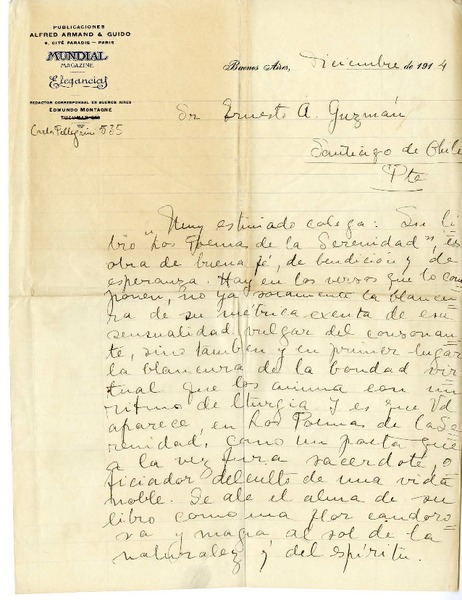 PUBLICACIONES
ALFRED ARMAND & GUIDO
6, CITÉ PARADIS — PARIS
MUNDIAL
MAGAZINE
Elegancias
REDACTOR CORRESPONSAL EN BUENOS AIRES
EDMUNDO MONTAGNE
TUCUMAN
Carlos Pellegrini 535
Buenos Aires, Diciembre de 1914
Sr Ernesto A. Guzmán
Santiago de Chile
Pte
Muy estimado colega: Su li
bro "Los Poemas de la Serenidad", es
obra de buena fé, de bendición y de
esperanza. Hay en los versos que lo com
ponen, no ya solamente la blancu
ra de su métrica exenta de esa
sensualidad vulgar del consonan
te, sino tambien y en primer lugar
la blancura de la bondad vir
tual que los anima con un
ritmo de liturgia Y es que Vd
aparece, en Los Poemas de la Se
renidad, como un poeta que
a la vez fuera sacerdote, o
ficiador del culto de una vida
noble. Se abre el alma de su
libro como una flor candoro
sa y magna, al sol de la
naturaleza y del espíritu.